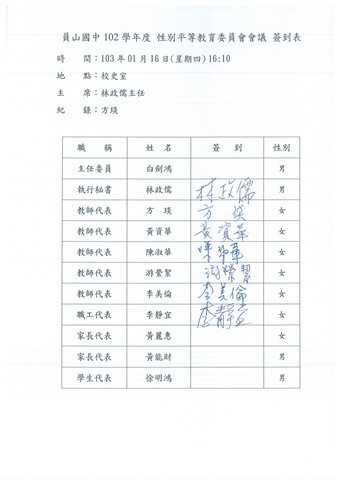 員山國中 102 學年度 性別平等教育委員會會議 簽到表
時 間：103 年 01 月 16 日(星期四)16:10
地 點：校史室
主 席：林政儒主任
紀 錄：方瑛
職 稱 姓 名 簽 到 性別
主任委員 白劍鴻 男
執行秘書 林政儒 林政儒 男
教師代表 方 瑛 方 瑛 女
教師代表 黃寶華 黃寶華 女
教師代表 陳淑華 陳淑華 女
教師代表 游縈絜 游縈絜 女
教師代表 李美倫 李美倫 女
職工代表 李靜宜 李靜宜 女
家長代表 黃麗惠 女
家長代表 黃能財 男
學生代表 徐明鴻 男